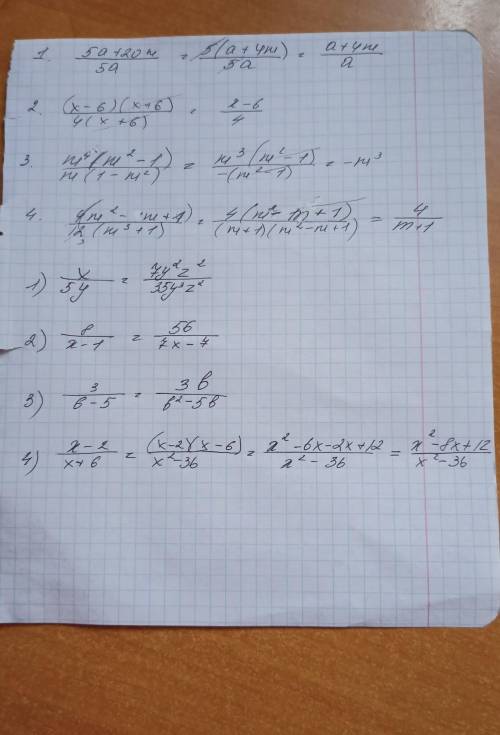 1. (5a+20m)/(5a) = 5(a+4m)/(5a) = (a+4m)/a
2. (x-6)(x+6)/(4(x+6)) = (x-6)/4
3. m⁴(m²-1)/(m(1-m²)) = m³(m²-1)/(-(m²-1)) = -m³
4. (m²-m+1)/(12(m³+1)) = 4(m²-m+1)/((m+1)(m²-m+1)) = 4/(m+1)
1) x/(5y) = 7y²z²/(35y³z²)
2) 8/(x-1) = 56/(7x-7)
3) 3/(b-5) = 3b/(b²-5b)
4) (x-2)/(x+6) = (x-2)(x-6)/(x²-36) = (x²-6x-2x+12)/(x²-36) = (x²-8x+12)/(x²-36)